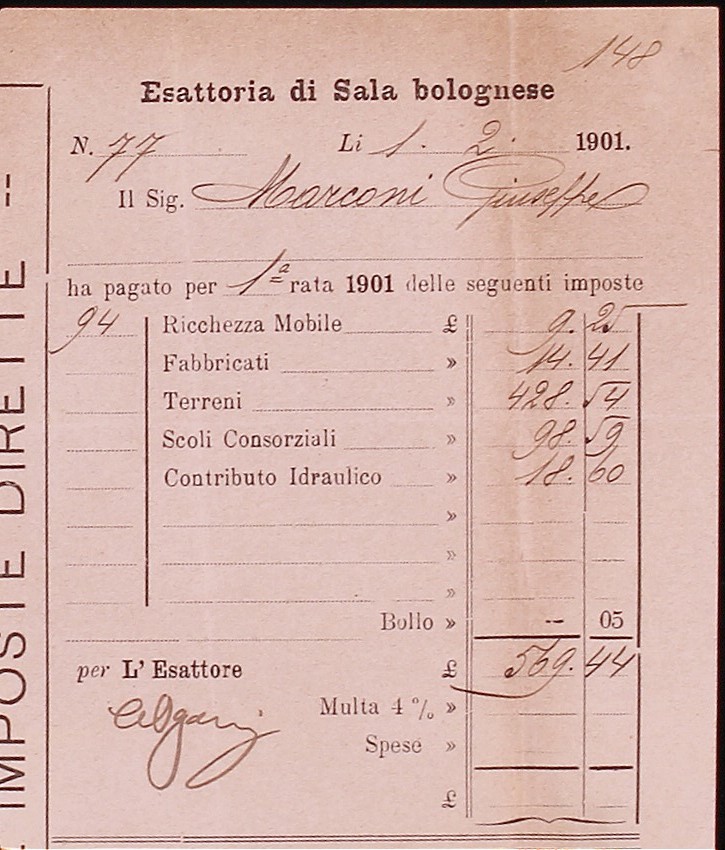 148
Esattoria di Sala bolognese
N. 77 Li 1. 2. 1901.
Il Sig. Marconi Giuseppe
ha pagato per 1ª rata 1901 delle seguenti imposte
94 Ricchezza Mobile £ 9. 25
Fabbricati » 14. 41
Terreni » 428. 54
Scoli Consorziali » 98. 59
Contributo Idraulico » 18. 60
»
»
»
Bollo » -- 05
per L' Esattore £ 569. 44
Multa 4 % »
Spese »
£
IMPOSTE DIRETTE --